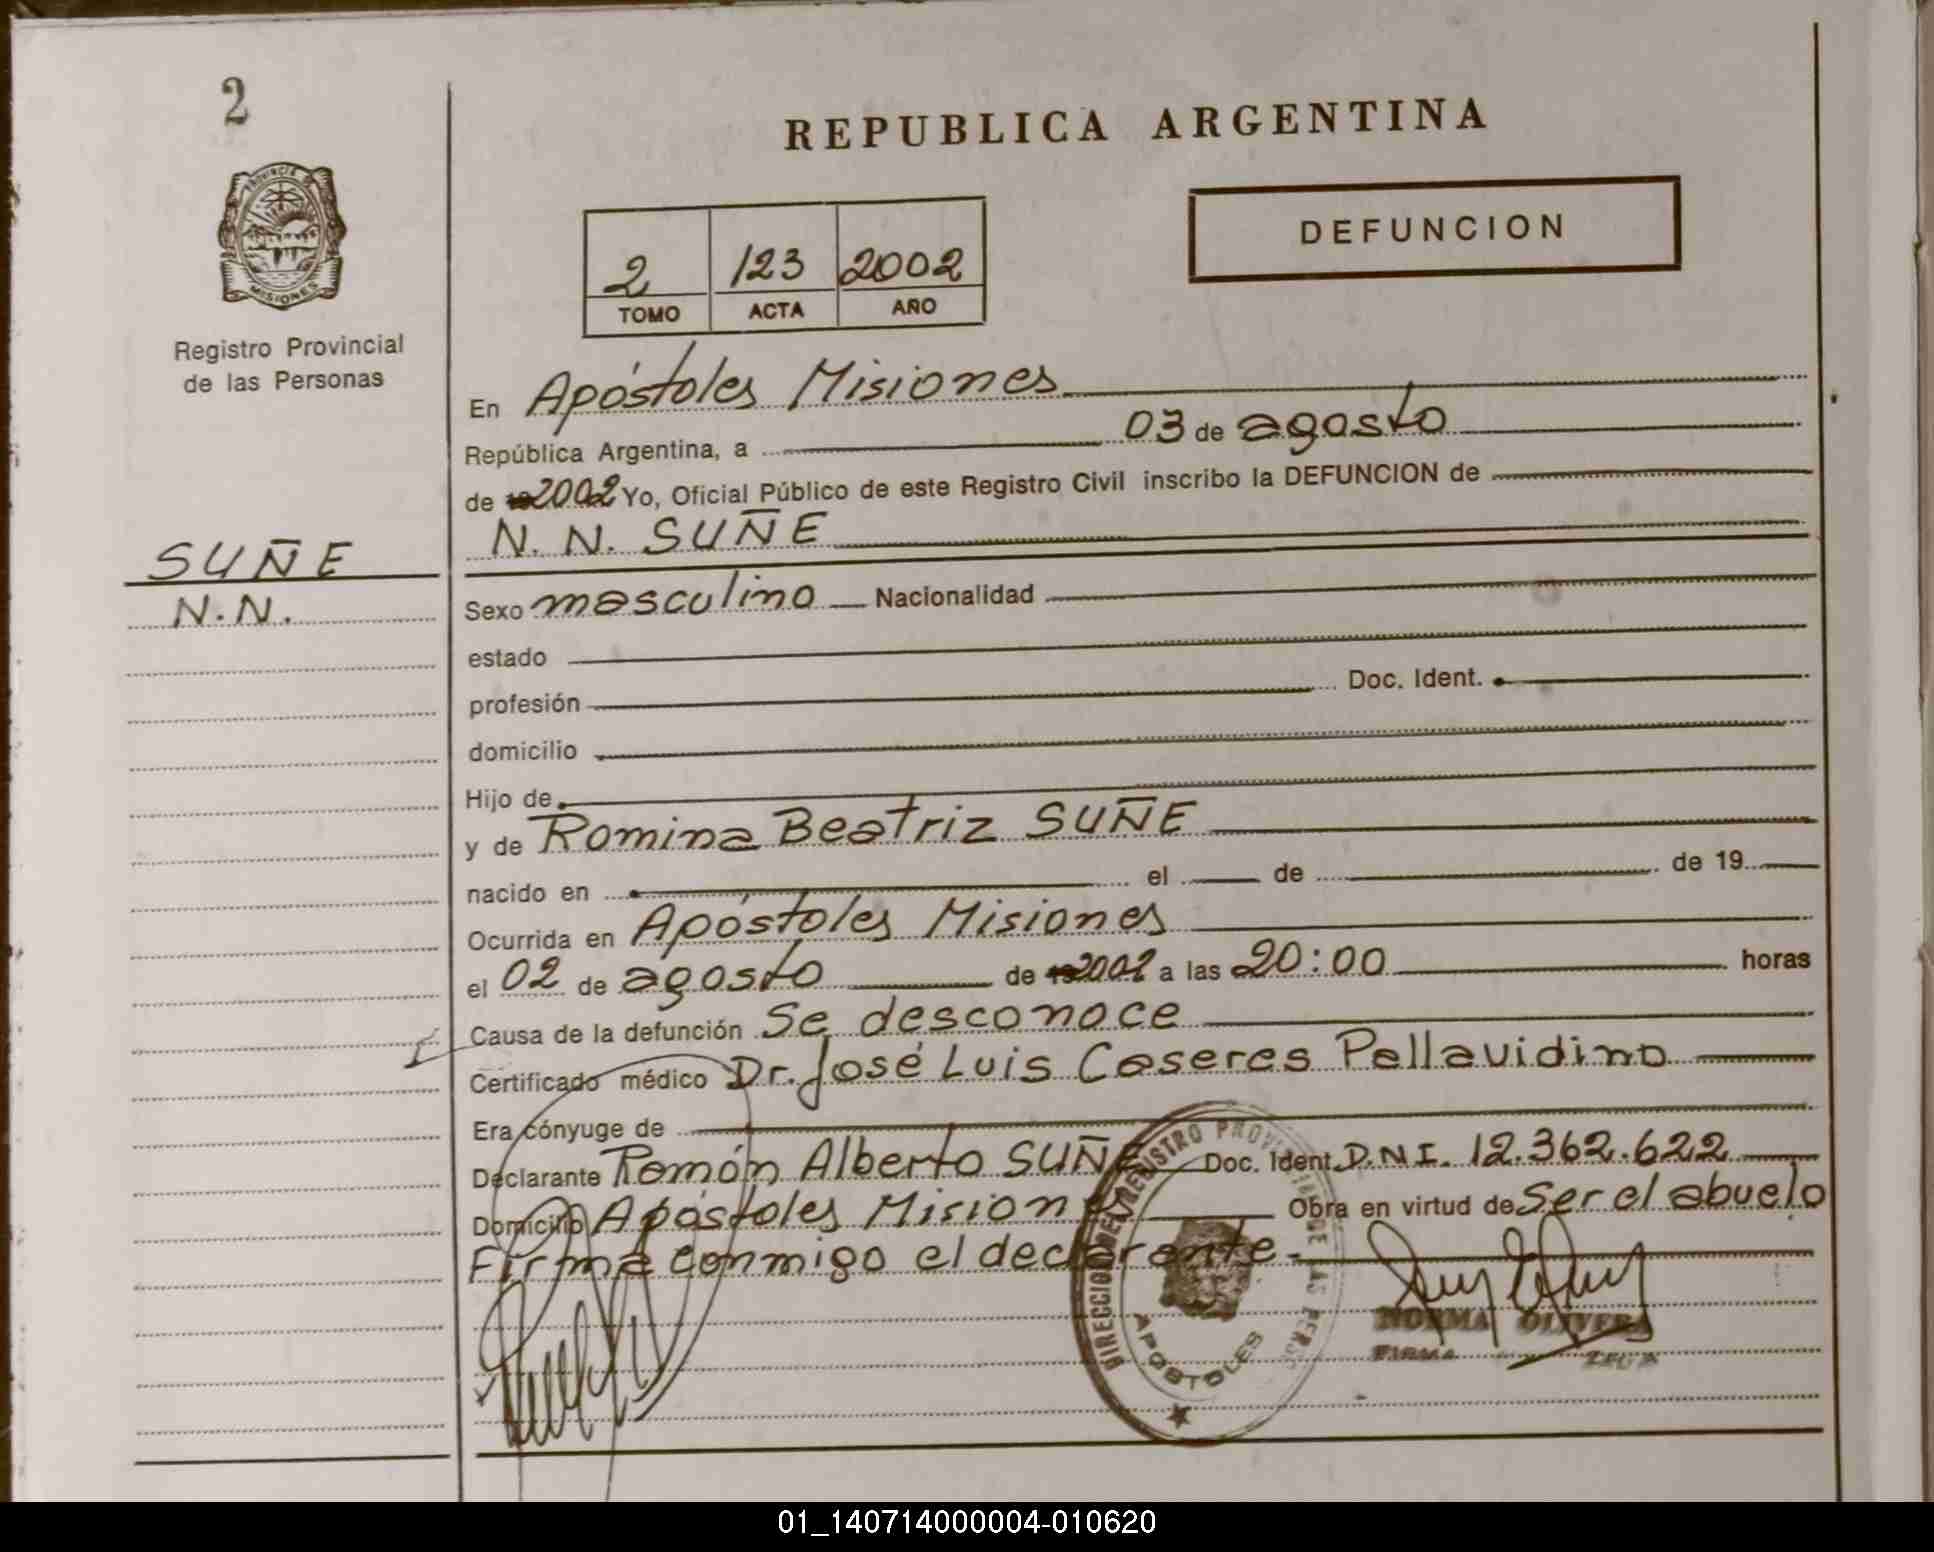 2
REPUBLICA ARGENTINA
PROVINCIA DE
MISIONES
Registro Provincial
de las Personas
2 123 2002
TOMO ACTA AÑO
DEFUNCION
En Apóstoles Misiones
República Argentina, a 03 de agosto
de 2002 Yo, Oficial Público de este Registro Civil inscribo la DEFUNCION de
N. N. SUÑE
SUÑE
N.N.
Sexo masculino Nacionalidad
estado
profesión Doc. Ident.
domicilio
Hijo de
y de Romina Beatriz SUÑE
nacido en el de de 19
Ocurrida en Apóstoles Misiones
el 02 de agosto de 2002 a las 20:00 horas
Causa de la defunción Se desconoce
Certificado médico Dr. José Luis Caseres Pallavidino
Era cónyuge de
Declarante Ramón Alberto SUÑE Doc. Ident. D.N.I. 12.362.622
Domicilio Apóstoles Misiones Obra en virtud de Ser el abuelo
Firma conmigo el declarante.-
DIRECCION DEL REGISTRO PROVINCIAL DE LAS PERS
APOSTOLES
NORMA OLIVERA
FIRMA
01_140714000004-010620